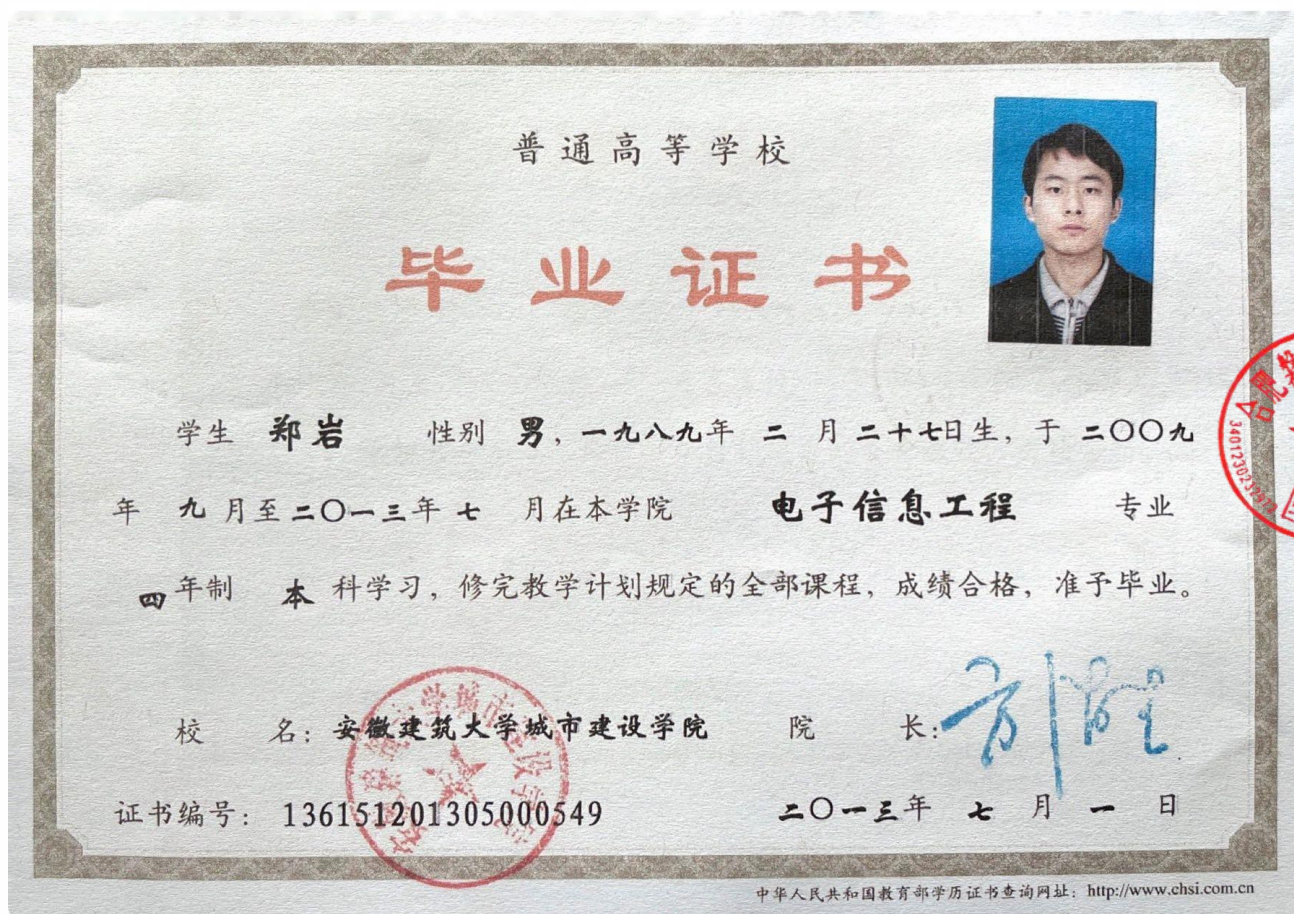 普通高等学校
毕业证书
学生 郑岩 性别 男，一九八九年 二 月 二十七日生，于 二〇〇九
年 九 月至 二〇一三年 七 月在本学院 电子信息工程 专业
四年制 本 科学习，修完教学计划规定的全部课程，成绩合格，准予毕业。
校 名：安徽建筑大学城市建设学院 院 长：
证书编号：136151201305000549 二〇一三年 七 月 一 日
中华人民共和国教育部学历证书查询网址：http://www.chsi.com.cn